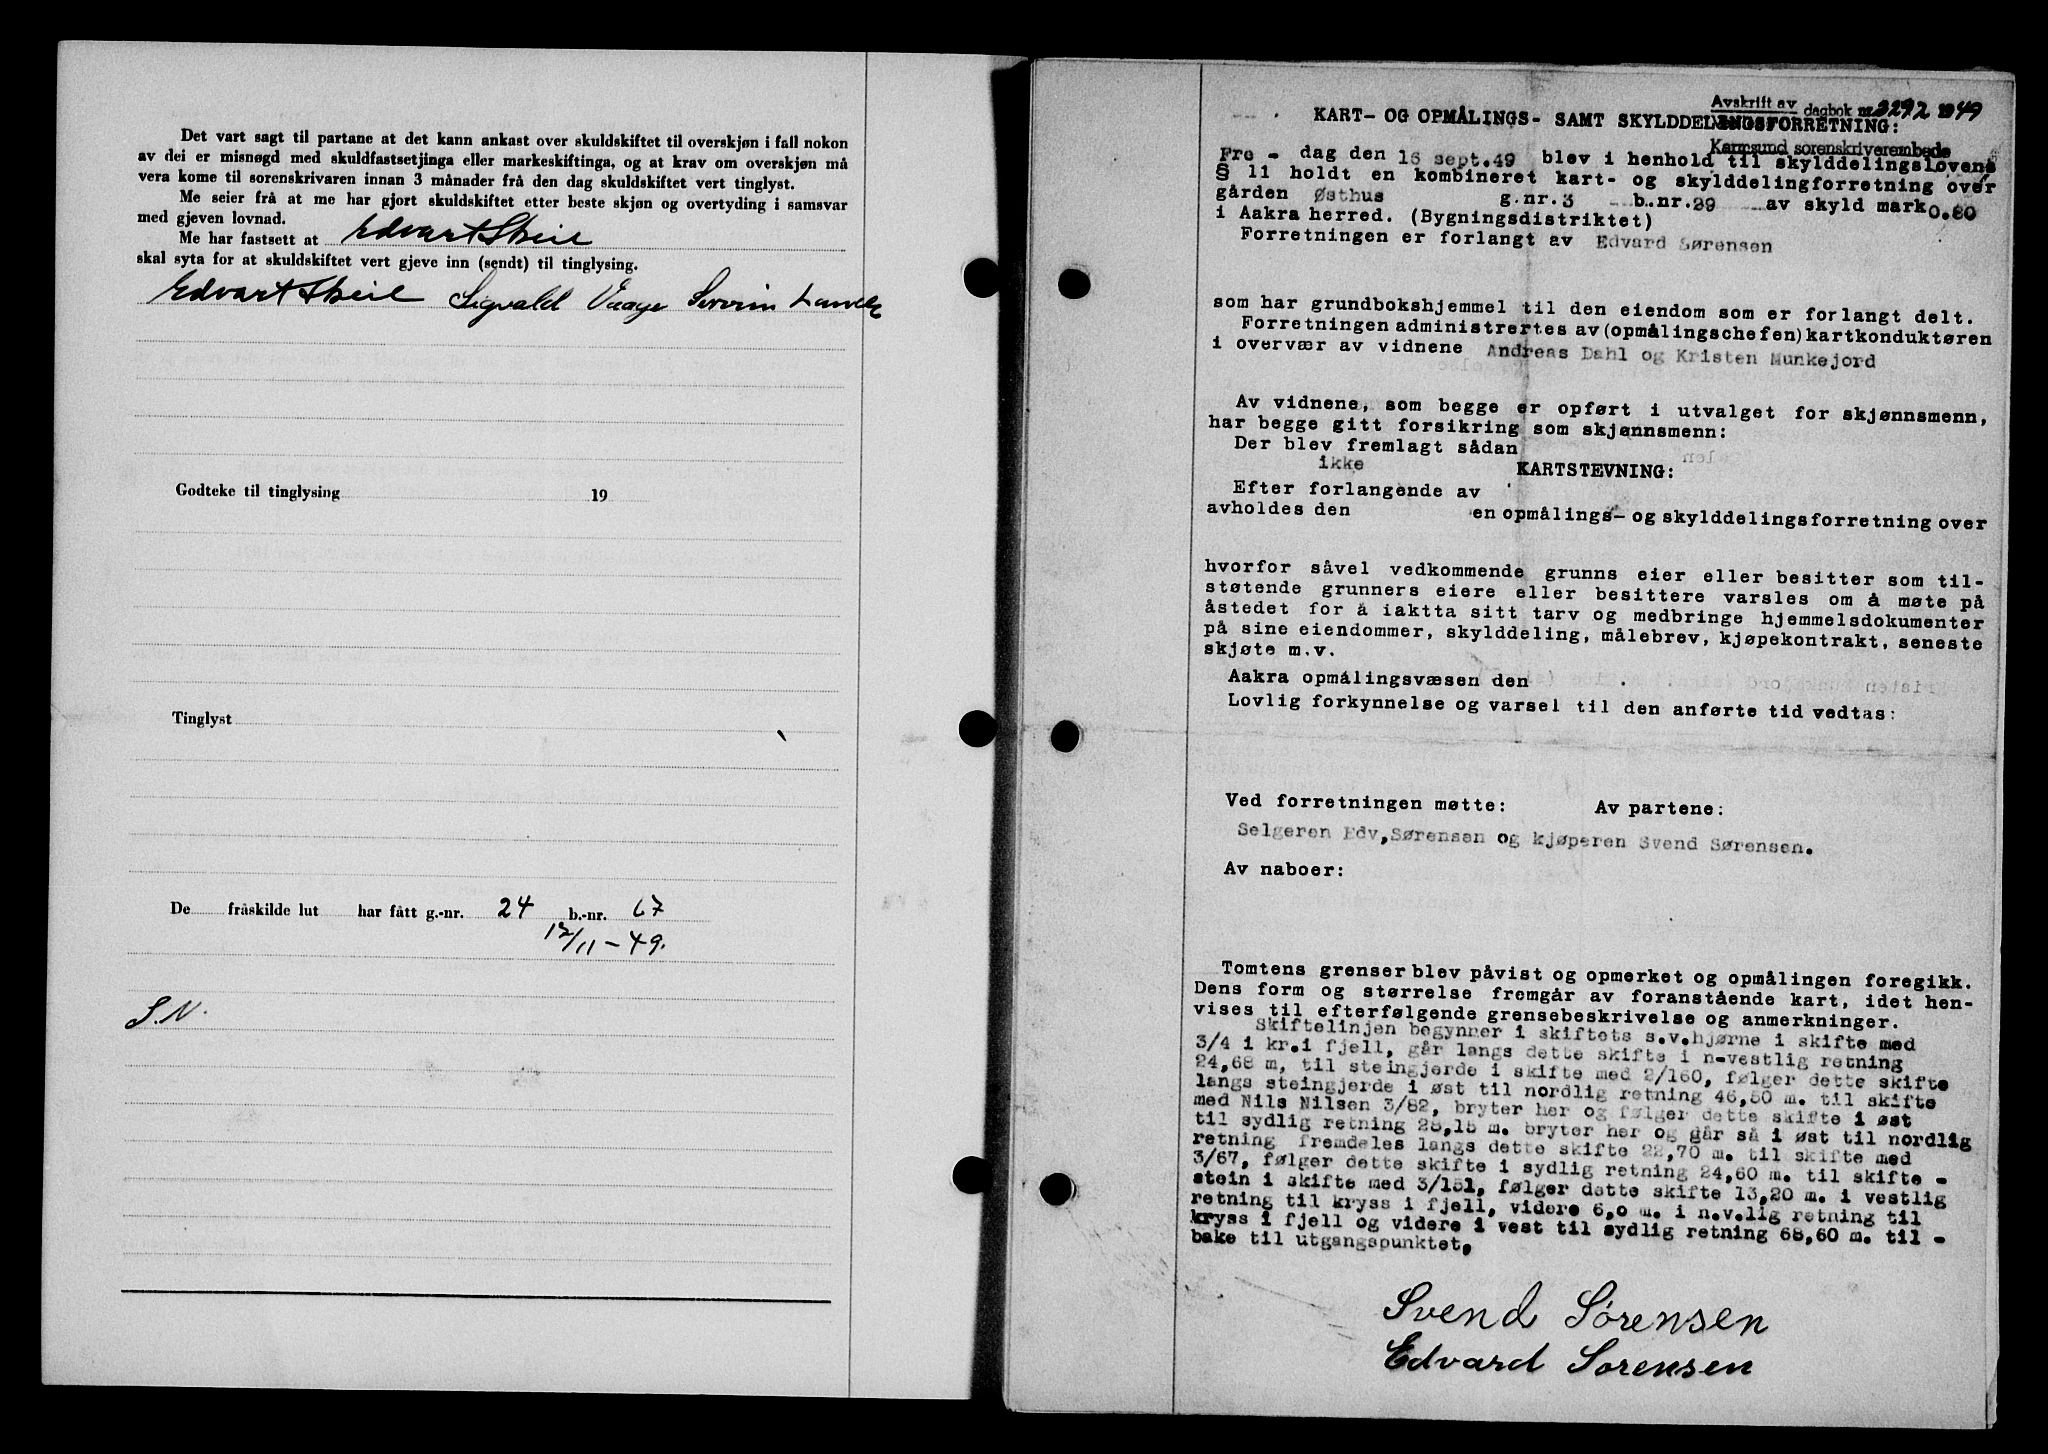 Det vart sagt til partane at det kann ankast over skuldskiftet til overskjøn i fall nokon
av dei er misnøgd med skuldfastsetjinga eller markeskiftinga, og at krav om overskjøn må
vera kome til sorenskrivaren innan 3 månader frå den dag skuldskiftet vert tinglyst.
Me seier frå at me har gjort skuldskiftet etter beste skjøn og overtyding i samsvar
med gjeven lovnad.
Me har fastsett at Edvart Skeie
skal syta for at skuldskiftet vert gjeve inn (sendt) til tinglysing.
Edvart Skeie Sigvald Vaage Severin
Godteke til tinglysing 19
Tinglyst
De fråskilde lut har fått g.-nr. 24 b.-nr. 67
12/11-49.
S.N.
Avskrift av dagbok nr. 3292 1949
KART- OG OPMÅLINGS- SAMT SKYLDDELINGSFORRETNING:
Karmsund sorenskriverembede
Fre - dag den 16 sept.49 blev i henhold til skylddelingslovens
§ 11 holdt en kombineret kart- og skylddelingforretning over
gården Østhus g.nr. 3 b.nr. 29 av skyld mark 0.80
i Aakra herred. (Bygningsdistriktet)
Forretningen er forlangt av Edvard Sørensen
som har grundbokshjemmel til den eiendom som er forlangt delt.
Forretningen administrertes av (opmålingschefen) kartkonduktøren
i overvær av vidnene Andreas Dahl og Kristen Munkejord
Av vidnene, som begge er opført i utvalget for skjønnsmenn,
har begge gitt forsikring som skjønnsmenn:
Der blev fremlagt sådan
ikke KARTSTEVNING:
Efter forlangende av
avholdes den en opmålings- og skylddelingsforretning over
hvorfor såvel vedkommende grunns eier eller besitter som til-
støtende grunners eiere eller besittere varsles om å møte på
åstedet for å iaktta sitt tarv og medbringe hjemmelsdokumenter
på sine eiendommer, skylddeling, målebrev, kjøpekontrakt, seneste
skjøte m.v.
Aakra opmålingsvæsen den .
Lovlig forkynnelse og varsel til den anførte tid vedtas:
Ved forretningen møtte: Av partene:
Selgeren Edv, Sørensen og kjøperen Svend Sørensen.
Av naboer:
Tomtens grenser blev påvist og opmerket og opmålingen foregikk.
Dens form og størrelse fremgår av foranstående kart, idet hen-
vises til efterfølgende grensebeskrivelse og anmerkninger.
Skiftelinjen begynner i skiftets s.v.hjørne i skifte med
3/4 i kr.i fjell, går langs dette skifte i n-vestlig retning
24,68 m, til steingjerde i skifte med 2/160, følger dette skifte
langs steingjerde i øst til nordlig retning 46,80 m. til skifte
med Nils Nilsen 3/82, bryter her og følger dette skifte i øst
til sydlig retning 28,15 m. bryter her og går så i øst til nordlig
retning fremdeles langs dette skifte 22,70 m. til skifte med
3/67, følger dette skifte i sydlig retning 24,60 m. til skifte -
stein i skifte med 3/151, følger dette skifte 13,20 m. i vestlig
retning til kryss i fjell, videre 6,0 m. i n.v.lig retning til
kryss i fjell og videre i vest til sydlig retning 68,60 m. til -
bake til utgangspunktet,
Svend Sørensen
Edvard Sørensen